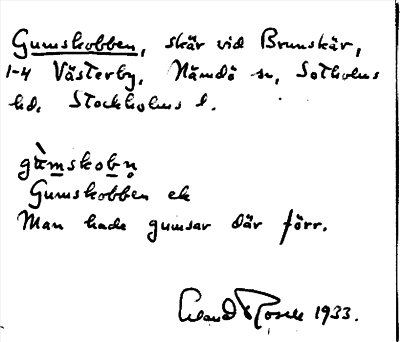 Gumskobben, skär vid Brunskär,
1-4 Västerby, Nämdö sn, Sotholms
hd, Stockholms l.
gùmskobn̥
Gumskobben ek
Man hade gumsar där förr.
Erland Rosell 1933.